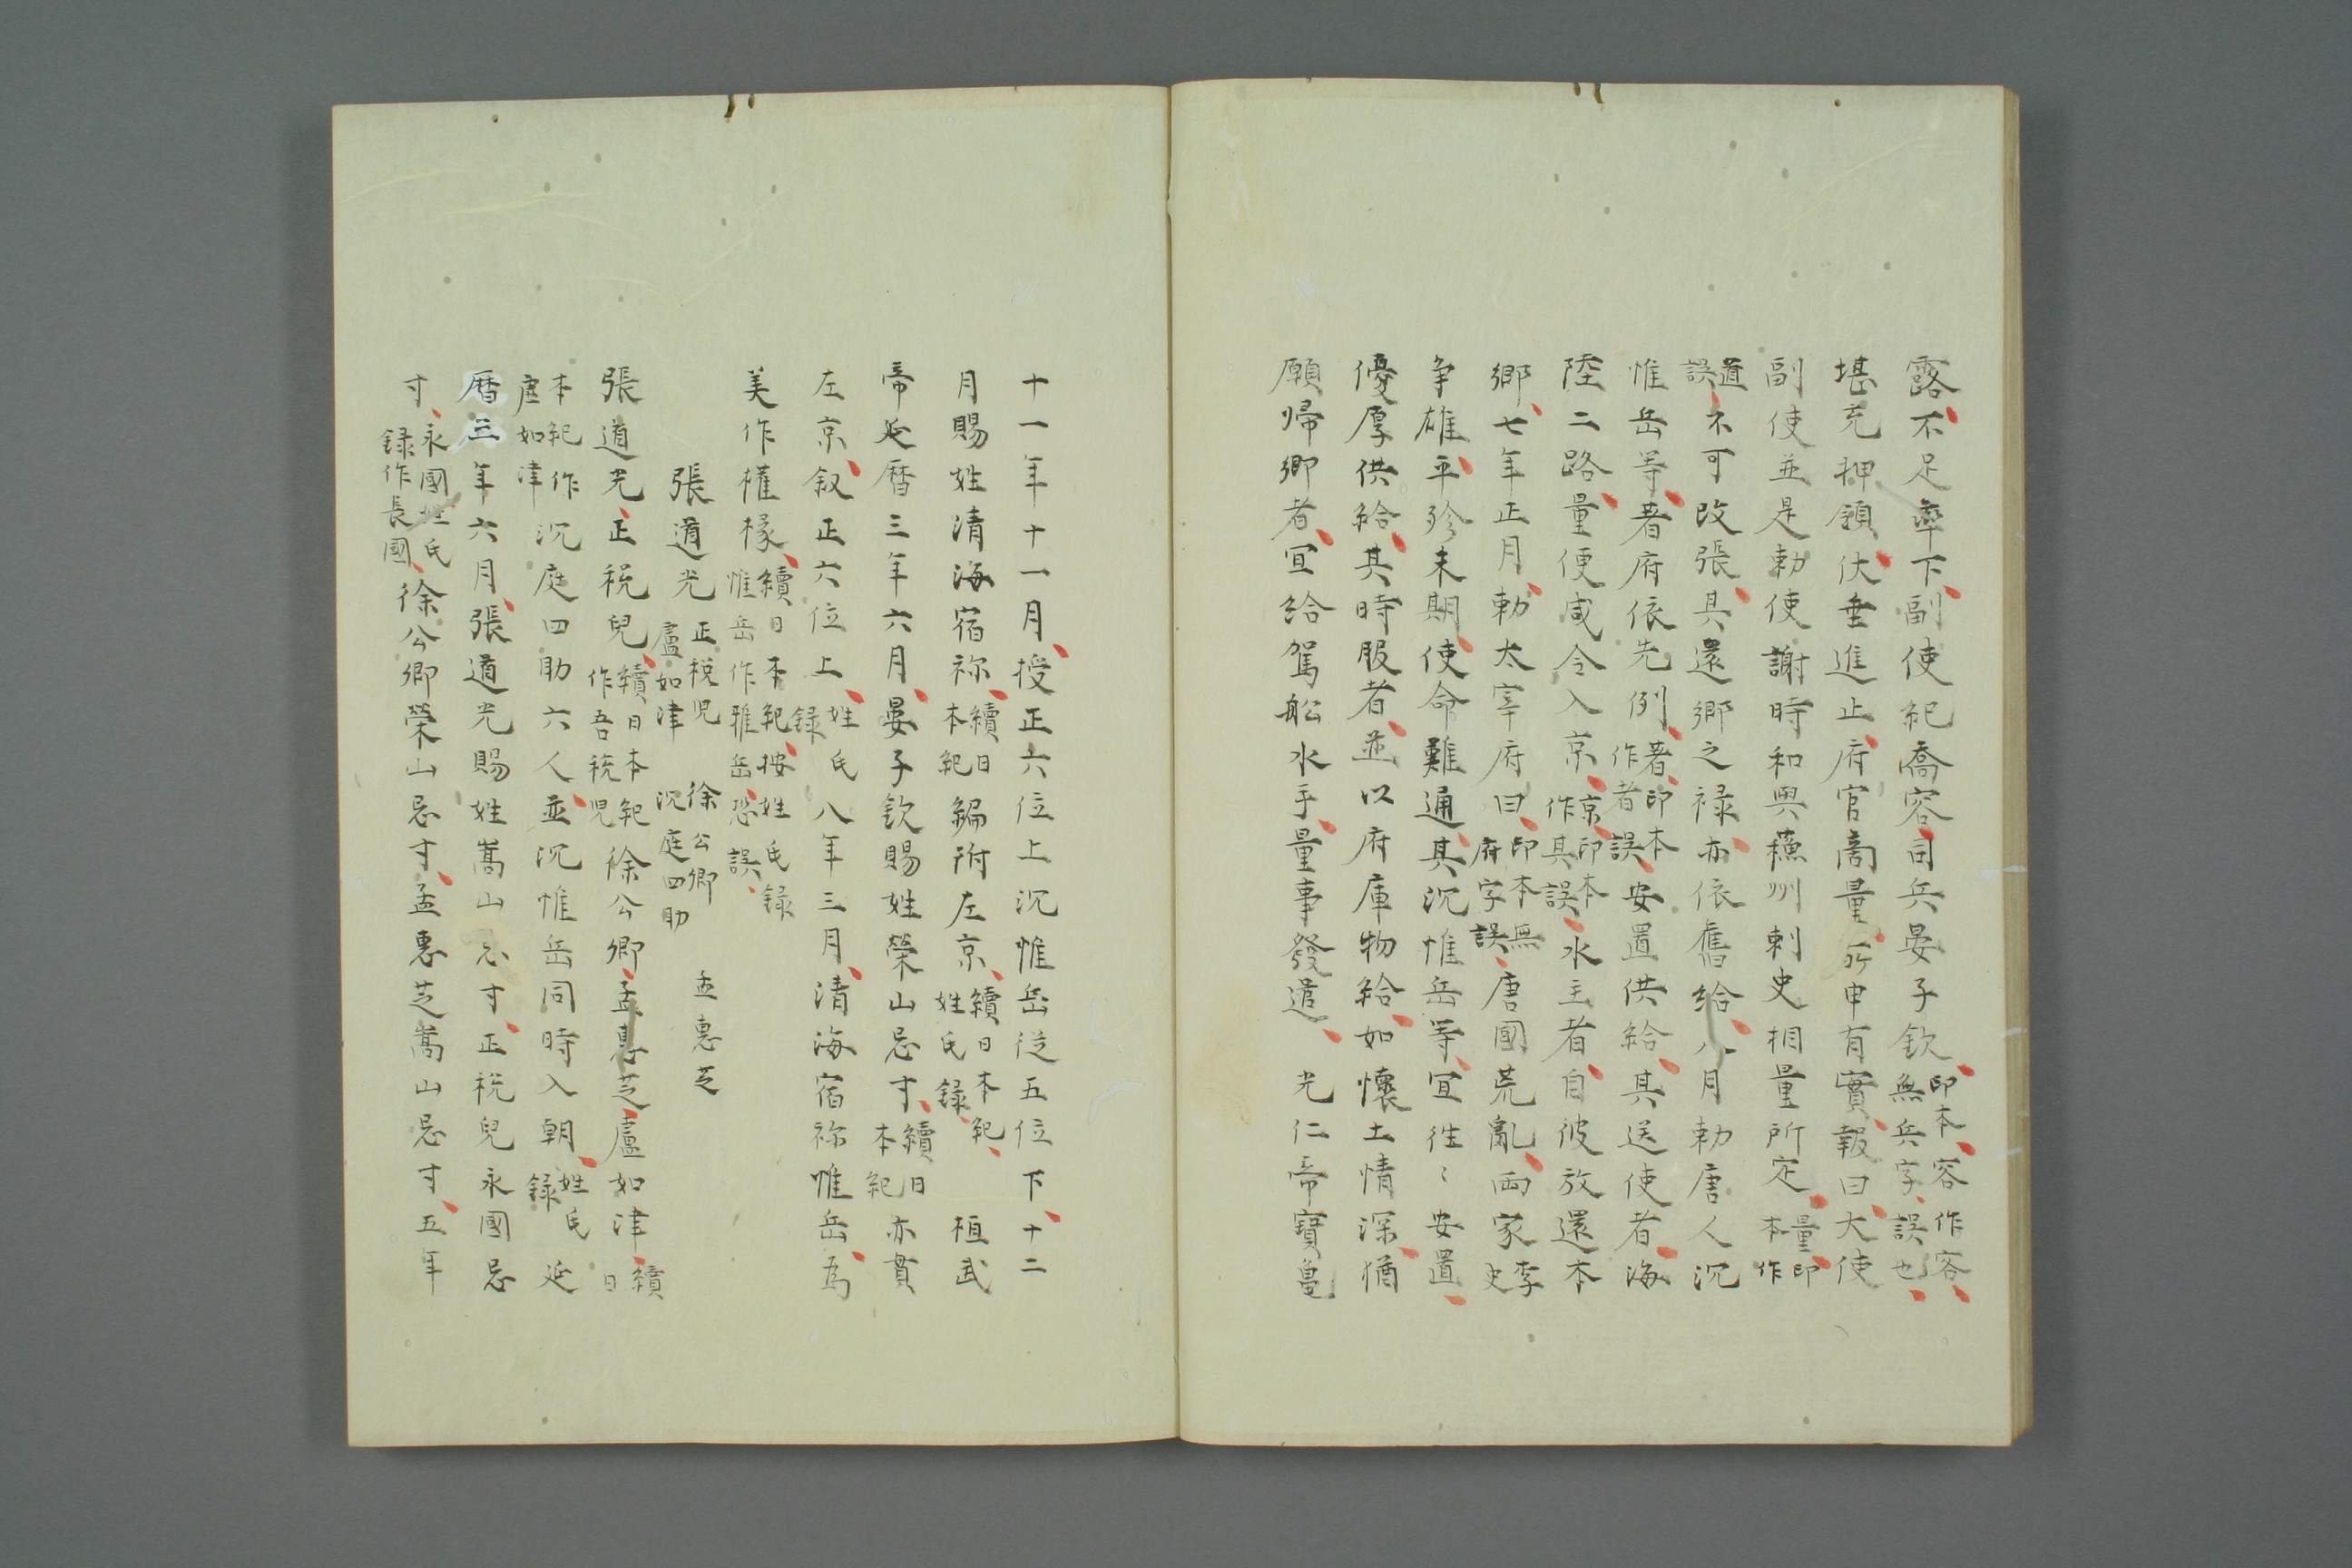 露不足率下副使紀喬容司兵晏子欽印本容作容無兵字誤也
堪充押領伏垂進止府官商量所申有實報曰大使
副使並是勅使謝時和與蘓州刺史相量所定量印本作
道誤不可改張其還鄉之禄亦依舊給八月勅唐人沉
惟岳等著府依先例著印本作者誤安置供給其送使者海
陸二路量便咸令入京京印本作其誤水主者自彼放還本
鄉七年正月勅太宰府曰印本無府字誤唐國荒亂両家李史
争雄平殄未期使命難通其沉惟岳等宜徃〻安置
優厚供給其時服者並以府庫物給如懷土情深猶
願帰郷者宜給駕船水手量事發遣光仁帝寶亀
十一年十一月授正六位上沉惟岳從五位下十二
月賜姓清海宿祢續日本紀編附左京續日本紀姓氏録桓武
帝延暦三年六月晏子欽賜姓榮山忌寸續日本紀亦貫
左京叙正六位上姓氏録八年三月清海宿祢惟岳為
美作權椽續日本紀按姓氏録惟岳作雅岳恐誤
張道光正税児盧如津徐公卿沉庭四助孟惠芝
張道光正税兒續日本紀作吾税児徐公卿孟惠芝盧如津續日
本紀作盧如津沉庭四助六人並沉惟岳同時入朝姓氏録延
暦三年六月張道光賜姓嵩山忌寸正税兒永國忌
寸永國姓氏録作長國徐公卿榮山忌寸孟惠芝嵩山忌寸五年